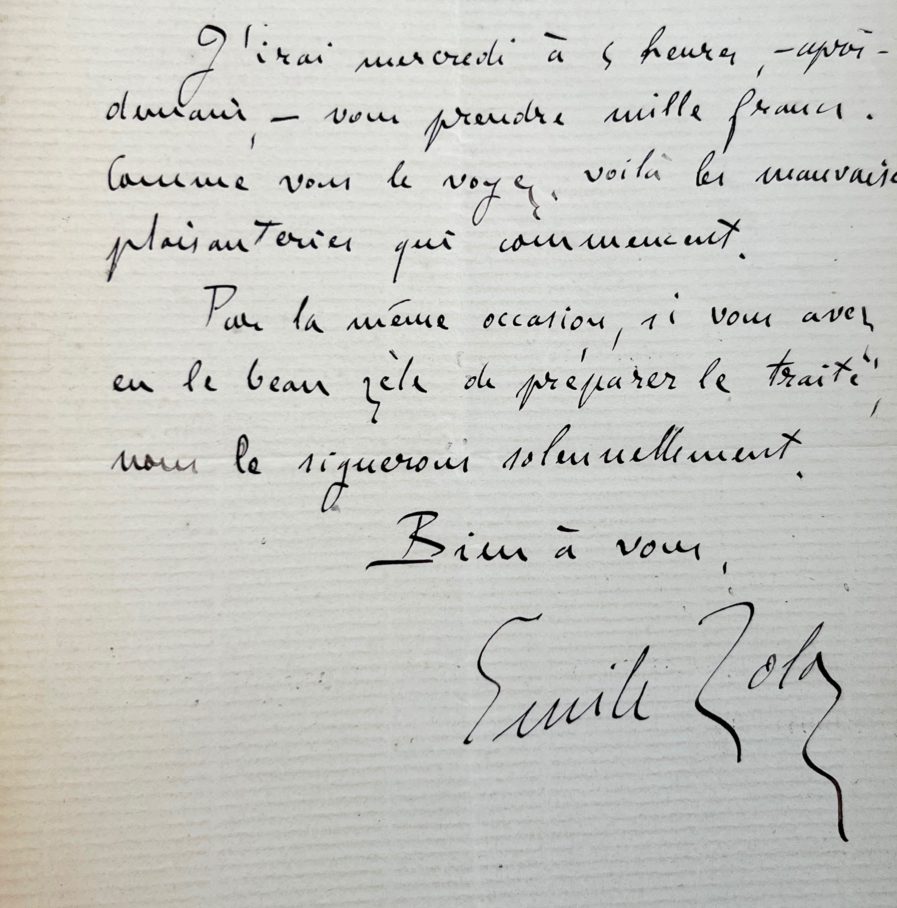 J'irai mercredi à 5 heures, – après-
demain, – vous prendre mille francs.
Comme vous le voyez, voilà les mauvaises
plaisanteries qui commencent.
Par la même occasion, si vous avez
eu le beau zèle de préparer le traité,
nous le signerons solennellement.
Bien à vous,
Emile Zola